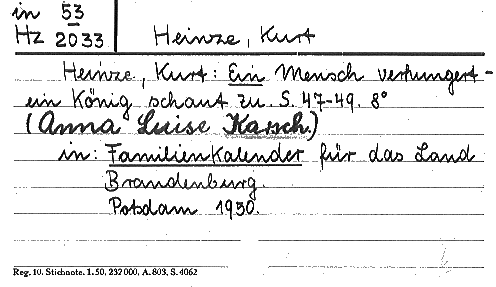 in 53
Hz 2033 Heinze, Kurt
Heinze, Kurt: Ein Mensch verhungert -
ein König schaut zu. S. 47-49. 8°
(Anna Luise Karsch.)
in: Familienkalender für das Land
Brandenburg.
Potsdam 1930.
Reg. 10. Stichnote. 1. 50, 232 000, A. 803, S. 4062